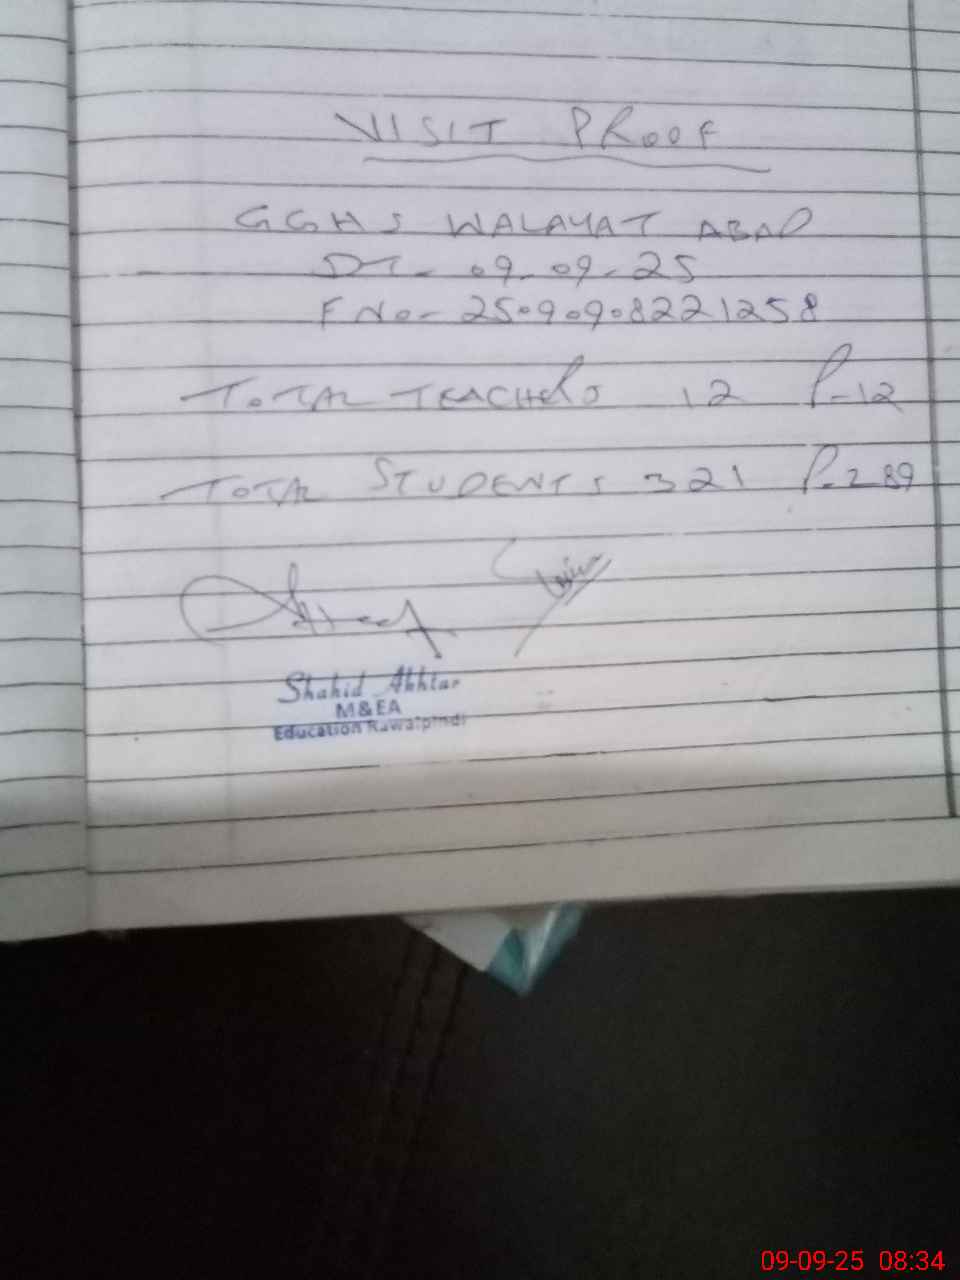 VISIT PROOF
GGHS WALAYAT ABAD
DT- 09-09-25
F No- 25090908221258
TOTAL TEACHERS 12 P-12
TOTAL STUDENTS 321 P-289
Shahid Akhtar
M&EA
Education Rawalpindi
09-09-25 08:34